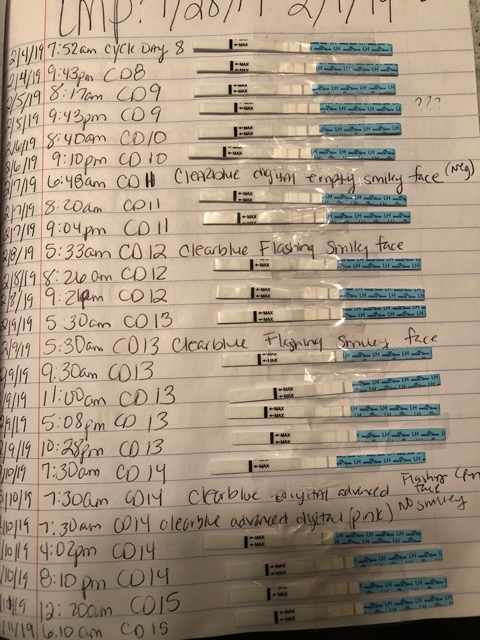 LMP: 1/28/19 2/4/19
2/4/19 7:52am Cycle Day 8
2/4/19 9:43pm CD8
2/5/19 8:17am CD9
2/5/19 9:43pm CD9 ???
2/6/19 8:40am CD10
2/6/19 9:10pm CD10
2/7/19 6:48am CD11 Clearblue digital empty smiley face (neg)
2/7/19 8:20am CD11
2/7/19 9:04pm CD11
2/8/19 5:33am CD12 Clearblue Flashing Smiley face
2/8/19 8:26am CD12
2/8/19 9:21pm CD12
2/9/19 5:30am CD13
2/9/19 5:30am CD13 Clearblue Flashing Smiley face
2/9/19 9:30am CD13
2/9/19 11:00am CD13
2/9/19 5:08pm CD13
2/9/19 10:28pm CD13
2/10/19 7:30am CD14
2/10/19 7:30am CD14 Clearblue digital advanced Flashing face
2/10/19 7:30am CD14 clearblue advanced digital (pink) No smiley
2/10/19 4:02pm CD14
2/10/19 8:10pm CD14
2/11/19 12:20am CD15
2/11/19 6:10am CD15
MAX
LH